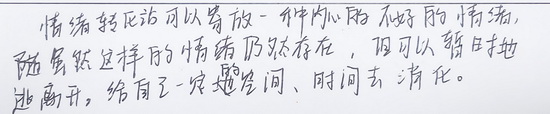 情绪转化站可以寄放一种内心的不好的情绪,
虽然这样的情绪仍然存在,但可以暂时地
逃离开。给自己一定空间、时间去消化。